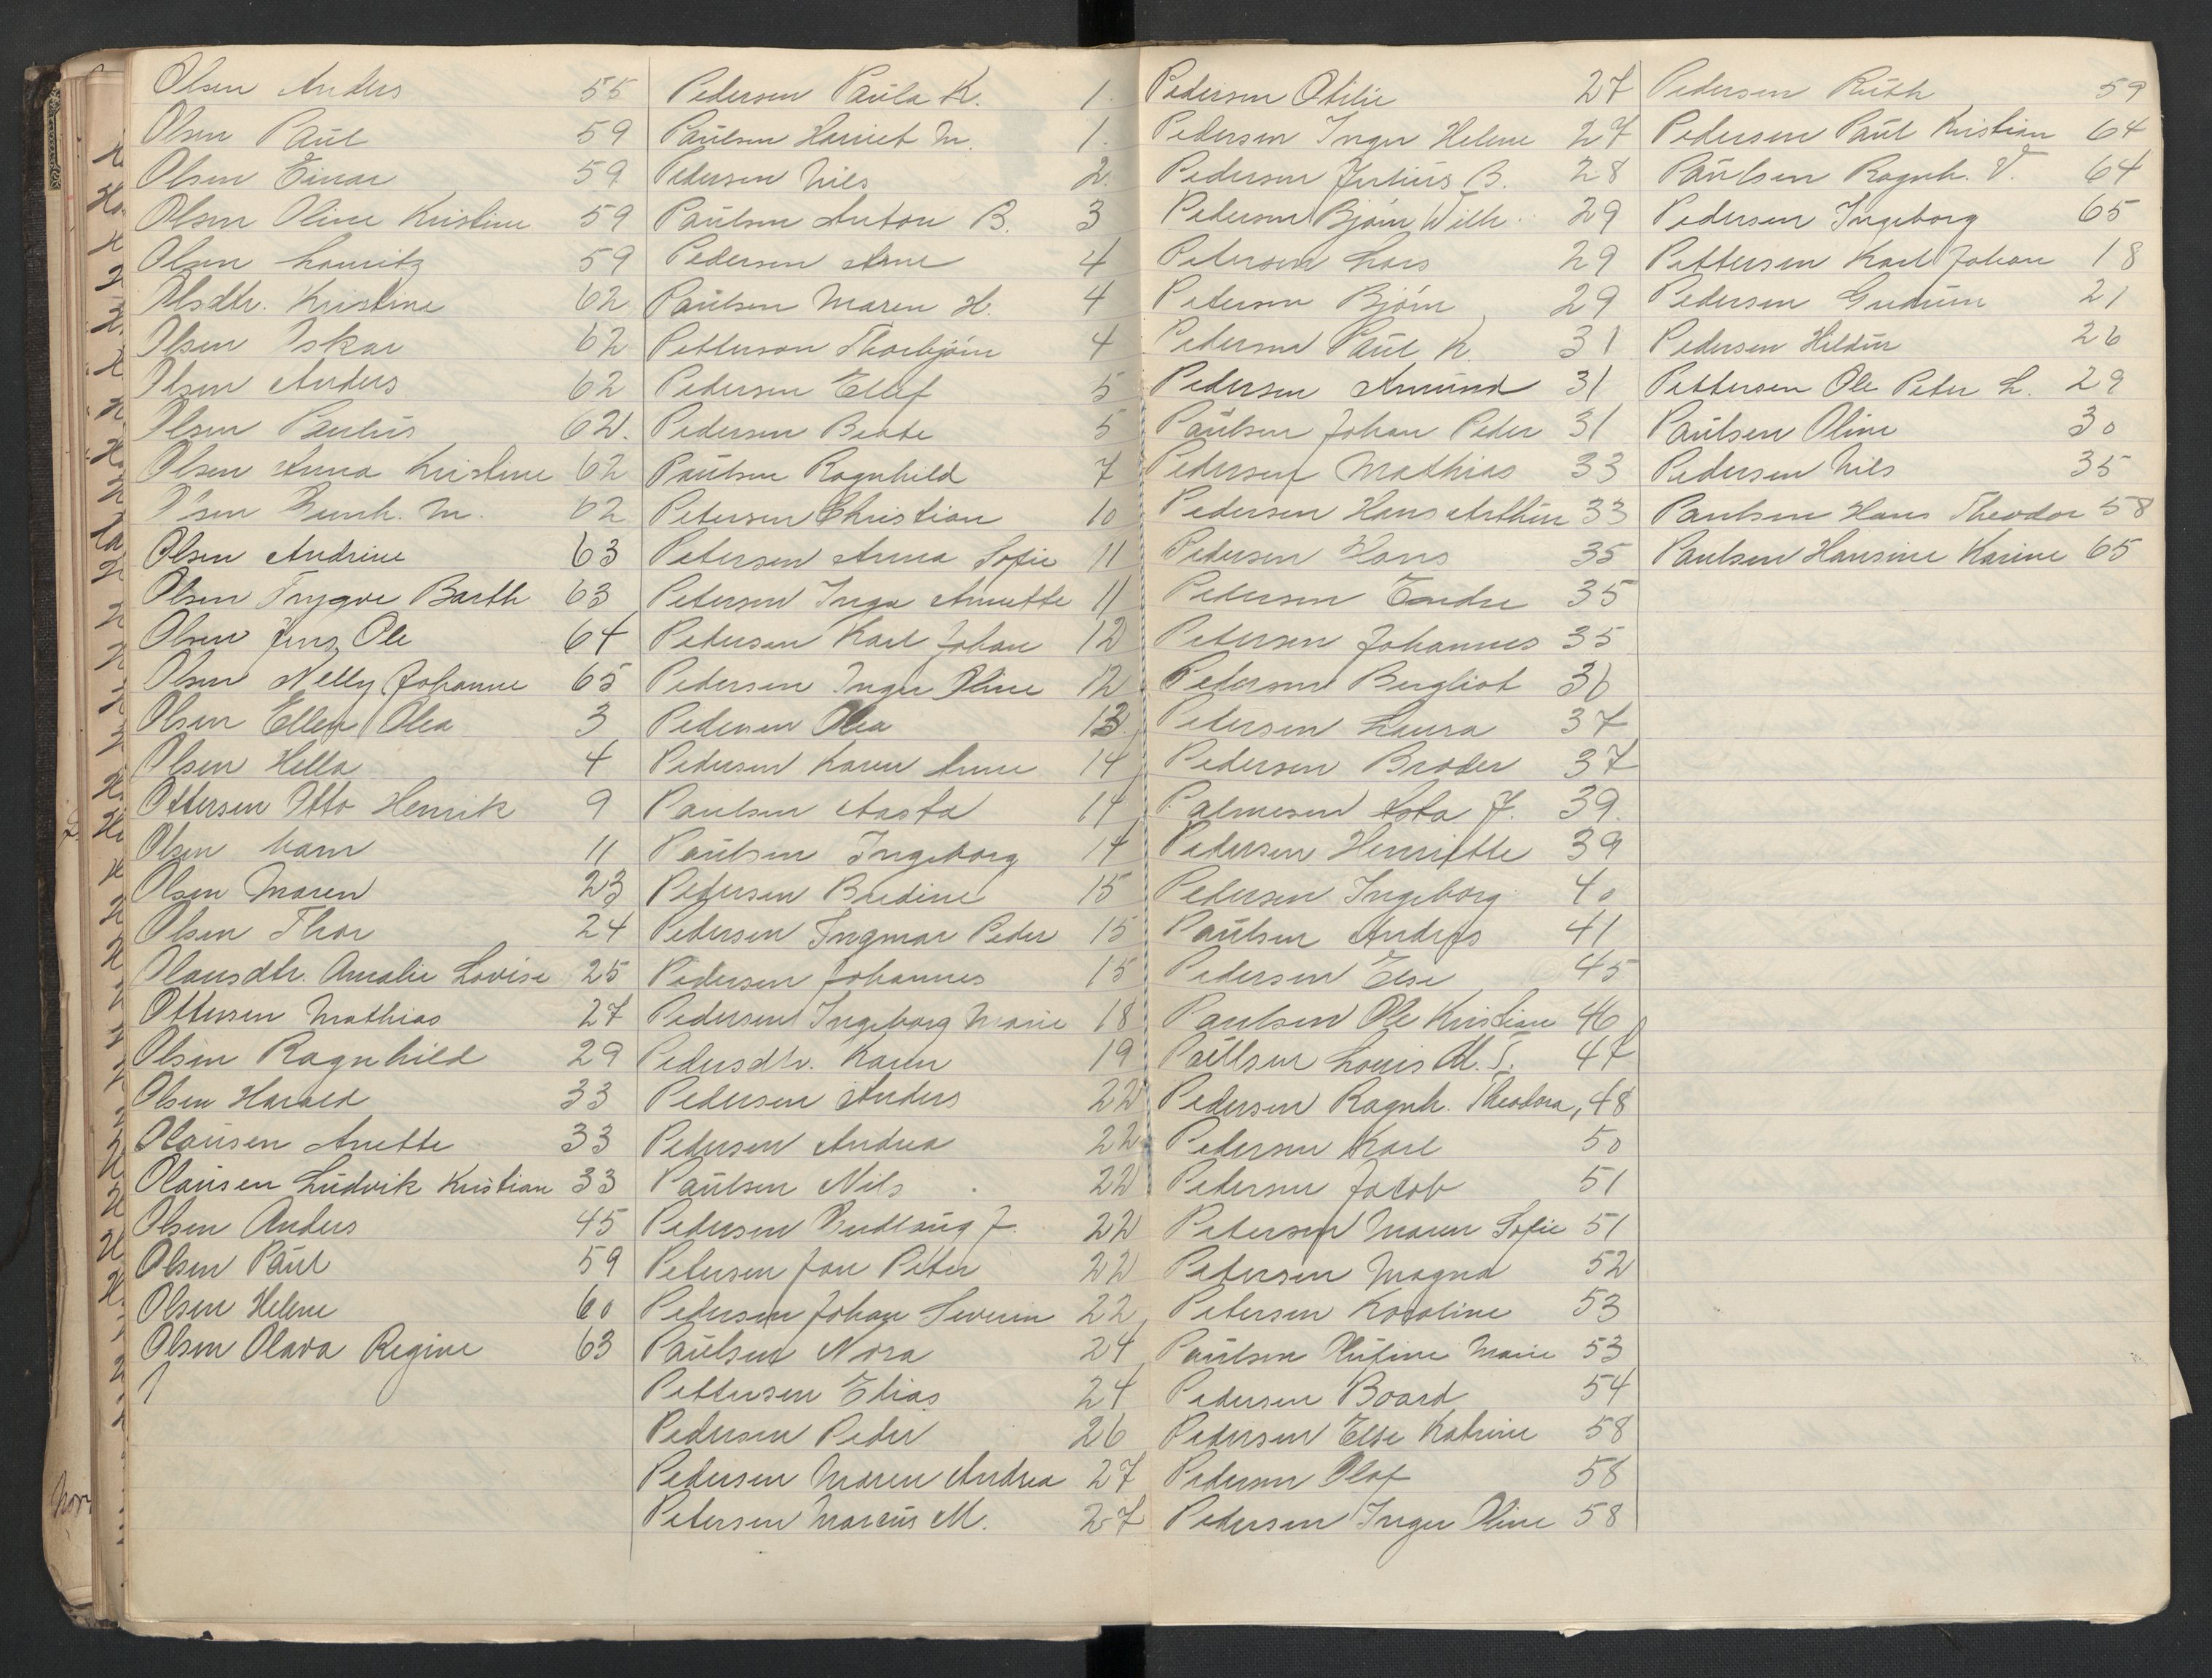 Olsen Anders 55
Olsen Paul 59
Olsen Einar 59
Olsen Oline Kristine 59
Olsen Lauritz 59
Olsdtr. Kristine 62
Olsen Oskar 62
Olsen Anders 62
Olsen Paulus 62.
Olsen Anna Kristine 62
Olsen M. 62
Olsen Andrine 63
Olsen Trygve Barth 63
Olsen Jens Ole 64
Olsen Nelly Johanne 65
Olsen Ellen Olea 3
Olsen Hella 4
Ottersen Otto Henrik 9
Olsen 11
Olsen Maren 23
Olsen Thor 24
Olausdtr. Amalie Lovise 25
Ottersen Mathias 27
Olsen Ragnhild 29
Olsen Harald 33
Olausen Anette 33
Olausen Ludvik Kristian 33
Olsen Anders 45
Olsen Paul 59
Olsen Helene 60
Olsen Olava Regine 63
Pedersen Paula K. 1.
Paulsen Harriet M. 1.
Pedersen Nils 2.
Paulsen Anton B. 3
Pedersen Arne 4
Paulsen Maren H. 4
Petterson Thorbjørn 4
Pedersen Ellef 5
Pedersen Beate 5
Paulsen Ragnhild 7
Petersen Christian 10
Petersen Anna Sofie 11
Petersen Inga Annette 11
Pedersen Karl Johan 12
Pedersen Inger Oline 12
Pedersen Olea 13
Pedersen Karen Anne 14
Paulsen Aasta 14
Paulsen Ingeborg 14
Pedersen Bredine 15
Pedersen Ingmar Peder 15
Pedersen Johannes 15
Pedersen Ingeborg Marie 18
Pedersdtr. Karen 19
Pedersen Anders 22
Pedersen Andrea 22
Paulsen Nils 22
Pedersen J. 22
Petersen Jon Peter 22
Pedersen Johan Severin 22
Paulsen Nora 24
Pettersen Elias 24
Pedersen Peder 26
Pedersen Maren Andrea 27
Petersen Marcus M. 27
Pedersen Otilie 27
Pedersen Inger Helene 27
Pedersen Julius B. 28
Pedersen Bjørn Wilh. 29
Petersen Lars 29
Petersen Bjørn 29
Pedersen Paul K. 31
Pedersen Amund 31
Paulsen Johan Peder 31
Pedersen Mathias 33
Pedersen Hans Arthur 33
Pedersen Hans 35
Petersen Endre 35
Petersen Johannes 35
Pedersen Bergliot 36
Petersen Laura 37
Pedersen Broder 37
Palmesen Asta J. 39.
Pedersen Henriette 39
Pedersen Ingeborg 40
Paulsen Andreas 41
Pedersen Else 45
Paulsen Ole Kristian 46
Paulsen Louis M. T. 47
Pedersen Ragnh. Theodora, 48
Pedersen Karl 50
Pedersen Jacob 51
Petersen Maren Sofie 51
Petersen Magna 52
Petersen Karoline 53
Paulsen Marie 53
Pedersen Board 54
Pedersen Else Katrine 58
Pedersen Olaf 58
Pedersen Inger Oline 58
Pedersen Ruth 59
Pedersen Paul Kristian 64
Paulsen Ragnh. V. 64
Pedersen Ingeborg 65
Pettersen Karl Johan 18
Pedersen Gudrun 21
Pedersen Hildur 26
Pettersen Ole Peter L. 29
Paulsen Oline 30
Pedersen Nils 35
Paulsen Hans Theodor 58
Paulsen Hansine Karine 65